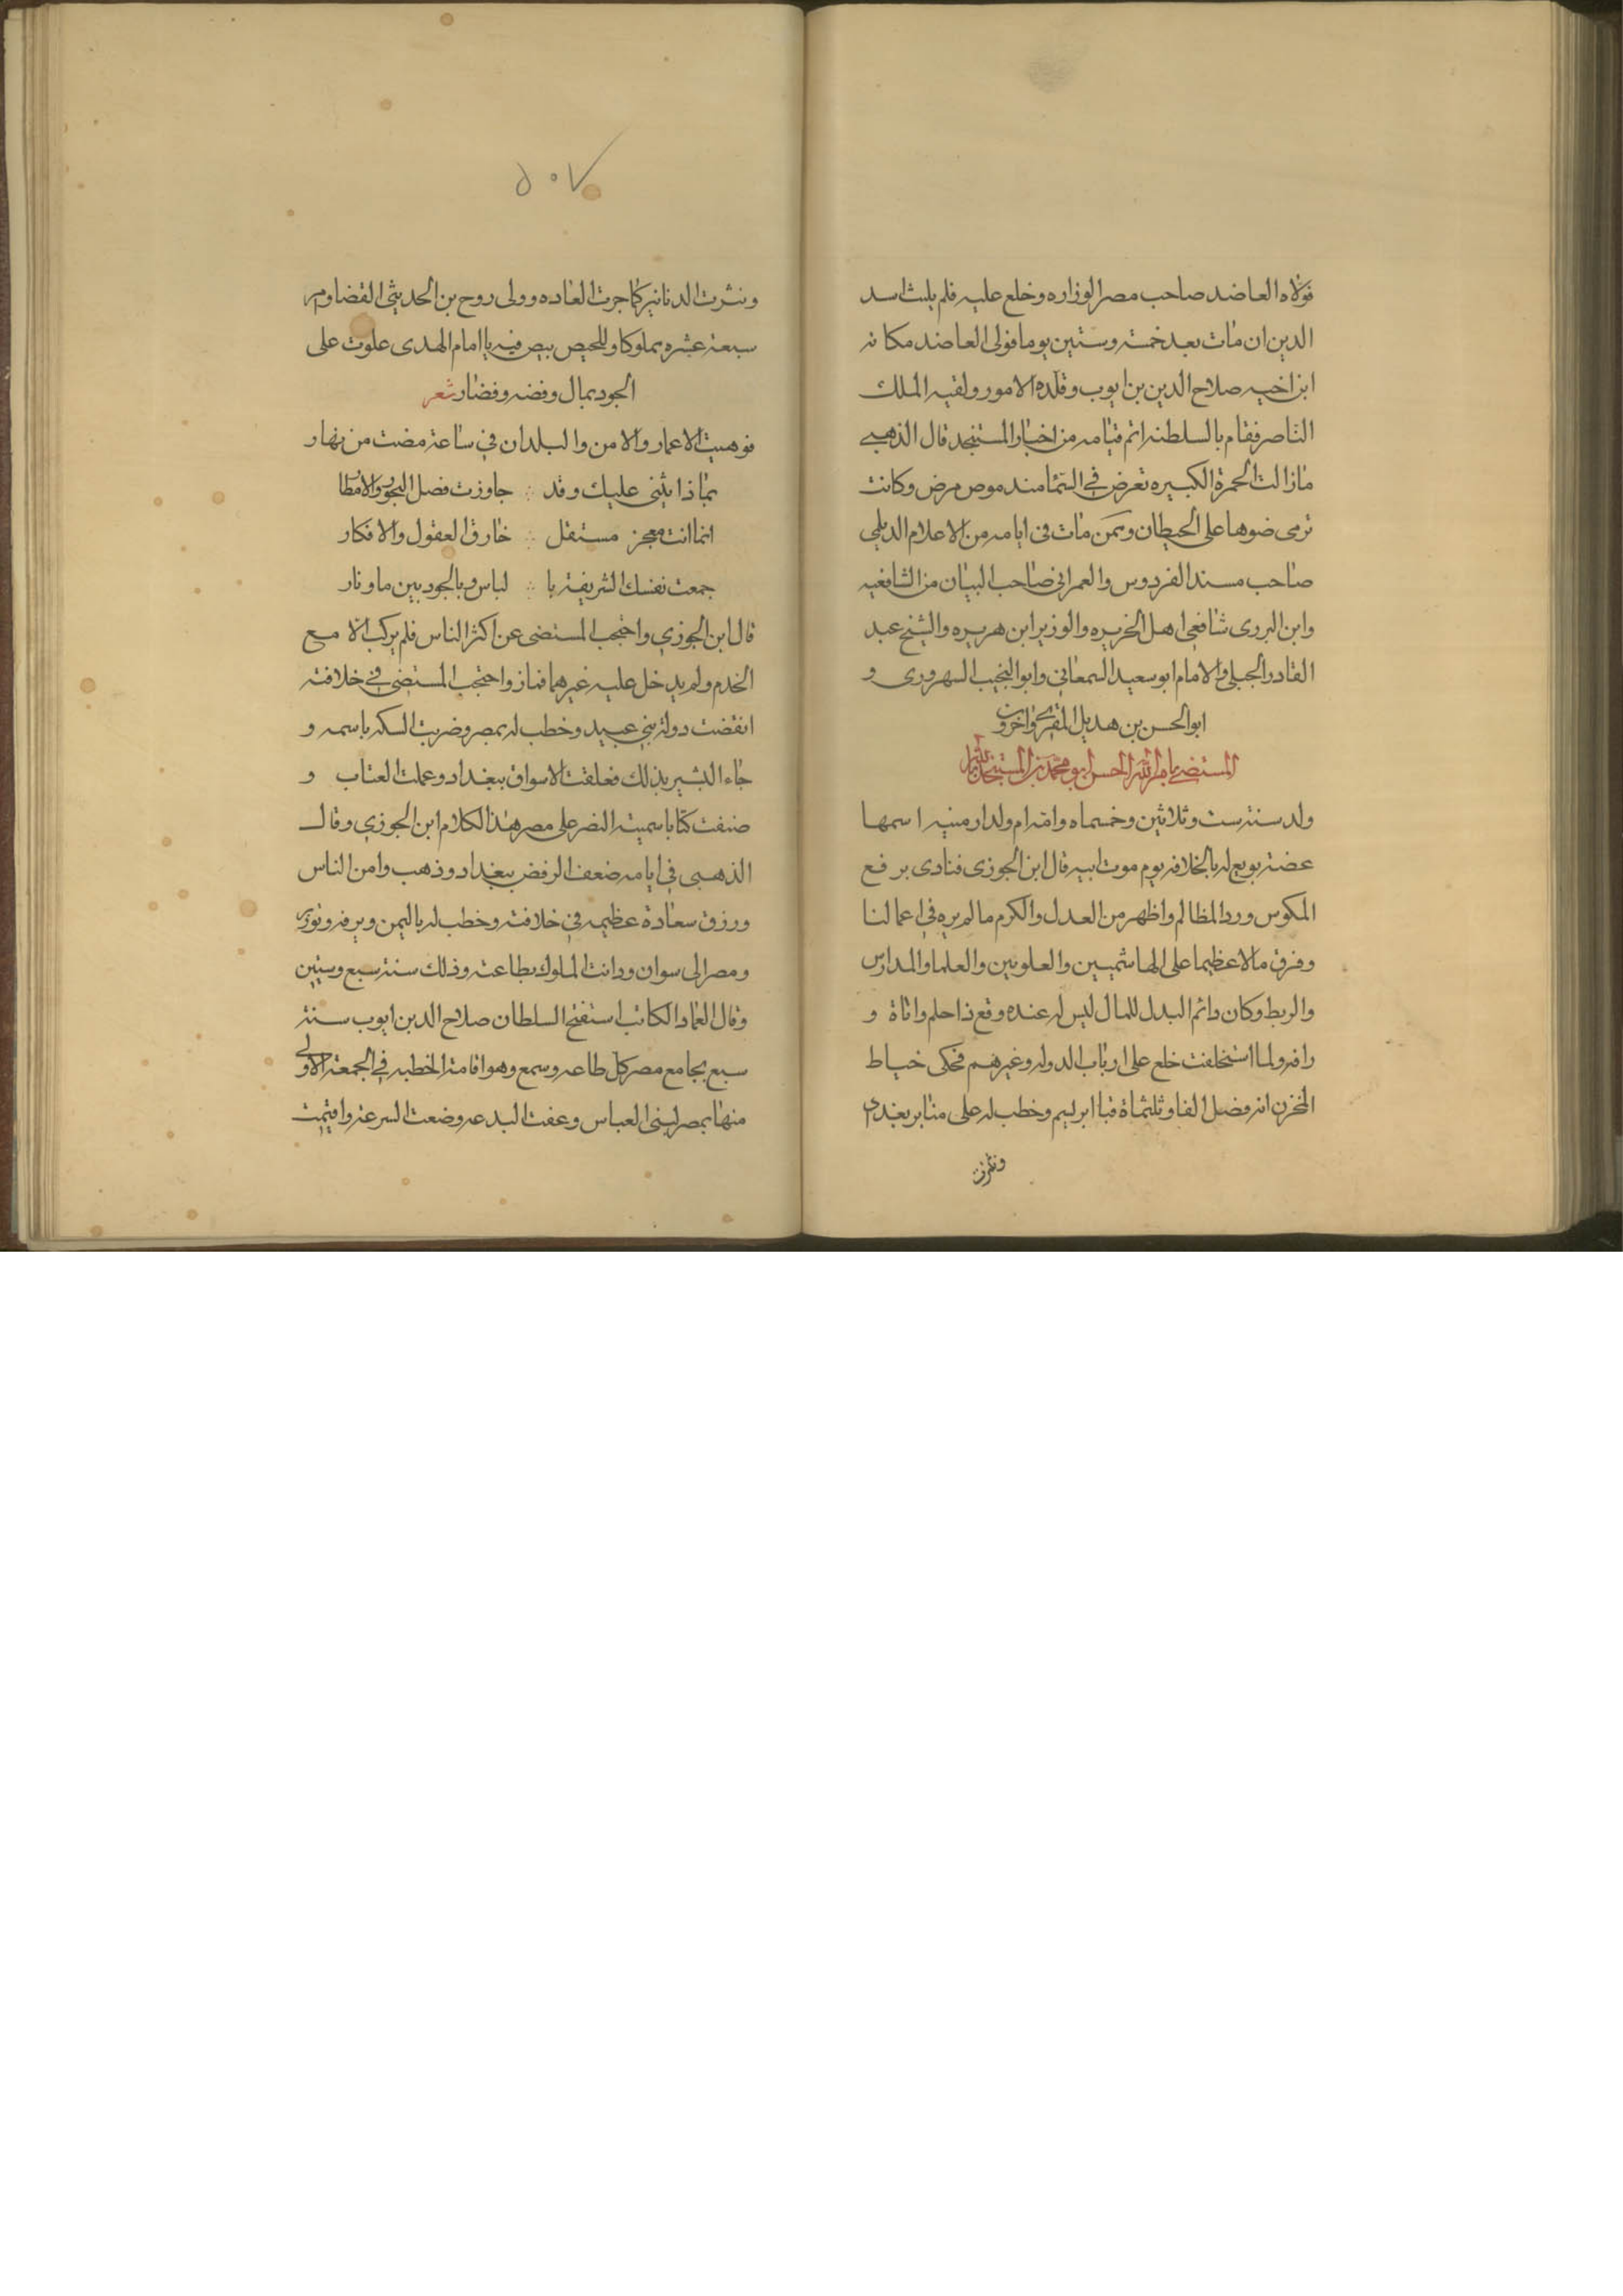 فولاه العاضد صاحب مصر الوزاره وخلع عليه فلم يلبث اسد
الدين ان مات بعد خمسة وستين يوما فولى العاضد مكانه
ابن اخيه صلاح الدين بن ايوب وقلده الامور ولقبه الملك
الناصر فقام بالسلطنه اتم قيامه من اخبار المستنجد قال الذهبي
مازالت الحمرة الكبيره تعرض في السما منذ مرض وكانت
ترمى ضوها على الحيطان وممن مات فى ايامه من الاعلام الديلمي
صاحب مسند الفردوس والعمرانى صاحب البيان من الشافعيه
وابن البزرى شافعى اهل الجزيره والوزير ابن هبيره والشيخ عبد
القادر الجيلى والامام ابو سعيد السمعانى وابو النجيب السهروردى و
ابو الحسن بن هديل المقرى واخرون
المستضى بامر الله الحسن ابو محمد بن المستنجد بالله
ولد سنة ست وثلاثين وخمسماه وامه ام ولد ارمنيه اسمها
غضة بويع له بالخلافه يوم موت ابيه قال ابن الجوزى فنادى برفع
المكوس ورد المظالم واظهر من العدل والكرم ما لم يره فى اعمالنا
وفرق مالا عظيما على الهاشميين والعلويين والعلما والمدارس
والربط وكان دائم البذل للمال ليس له عنده وقع ذا حلم واناة و
رافه ولما استخلفت خلع على ارباب الدوله وغيرهم فحكى خياط
المخزن انه فصل الفا وثلثماة قبا ابريسم وخطب له على منابر بغداد
ونثرت
٥٠٧
ونثرت الدنانير كما جرت العاده وولى روح بن الحديثى القضا وامر
سبعة عشره مملوكا وللحيص بيص فيه يا امام الهدى علوت على
الجود بمال وفضه وفضار شعر
فوهبت الاعمار والامن والبلدان فى ساعة مضت من نهار
بماذا يثنى عليك وقد ∴ جاوزت فضل البحور والامطار
انما انت معجز مستقل ∴ خارق العقول والافكار
جمعت نفسك الشريفة با ∴ لباس وبالجود بين ما ونار
قال ابن الجوزي واحتجب المستضى عن اكثر الناس فلم يركب الا مع
الخدم ولم يدخل عليه غير هما واحتجب المستضى في خلافته
انقضت دولة بني عبيد وخطب له بمصر وضربت السكه باسمه و
جاء البشير بذلك فغلقت الاسواق ببغداد وعملت القباب و
صنفت كتابا سميته النصر على مصر هذا الكلام ابن الجوزي وقال
الذهبى فى ايامه ضعف الرفض ببغداد وذهب وامن الناس
ورزق سعادة عظيمه فى خلافته وخطب له باليمن وبرقه وتوزر
ومصر الى سوان ودانت الملوك بطاعته وذلك سنة سبع وستين
وقال العماد الكاتب استفتح السلطان صلاح الدين ايوب سنة
سبع بجامع مصر كل طاعه وسمع وهو اقامة الخطبه في الجمعة الاولى
منها بمصر لبنى العباس وعفت البدعه وضعت السرعة واقيمت